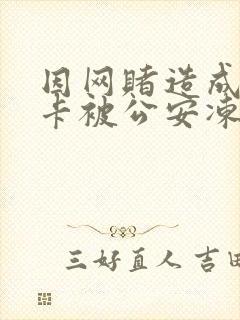 因网赌造成
卡被公安冻
三好直人 吉田